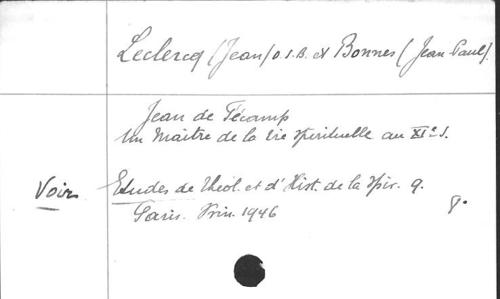 Leclercq (Jean) O.S.B. et Bonnes (Jean Paul).
Jean de Fécamp
Un Maître de la Vie spirituelle au XIe s.
Voir Etudes de théol. et d'Hist. de la spir. 9.
Paris. Vrin. 1946 8°